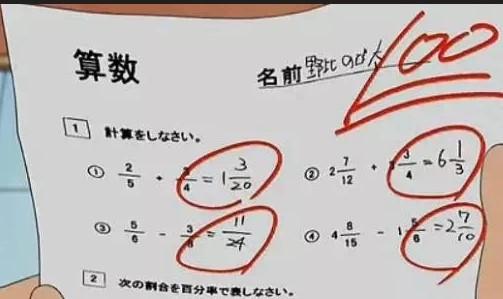 算数
名前 野比のび太
100
1 計算をしなさい。
① 2/5 + 3/4 = 1 3/20
② 2 7/12 + 3 3/4 = 6 1/3
③ 5/6 - 3/8 = 11/24
④ 4 8/15 - 1 5/6 = 2 7/10
2 次の割合を百分率で表しなさい。